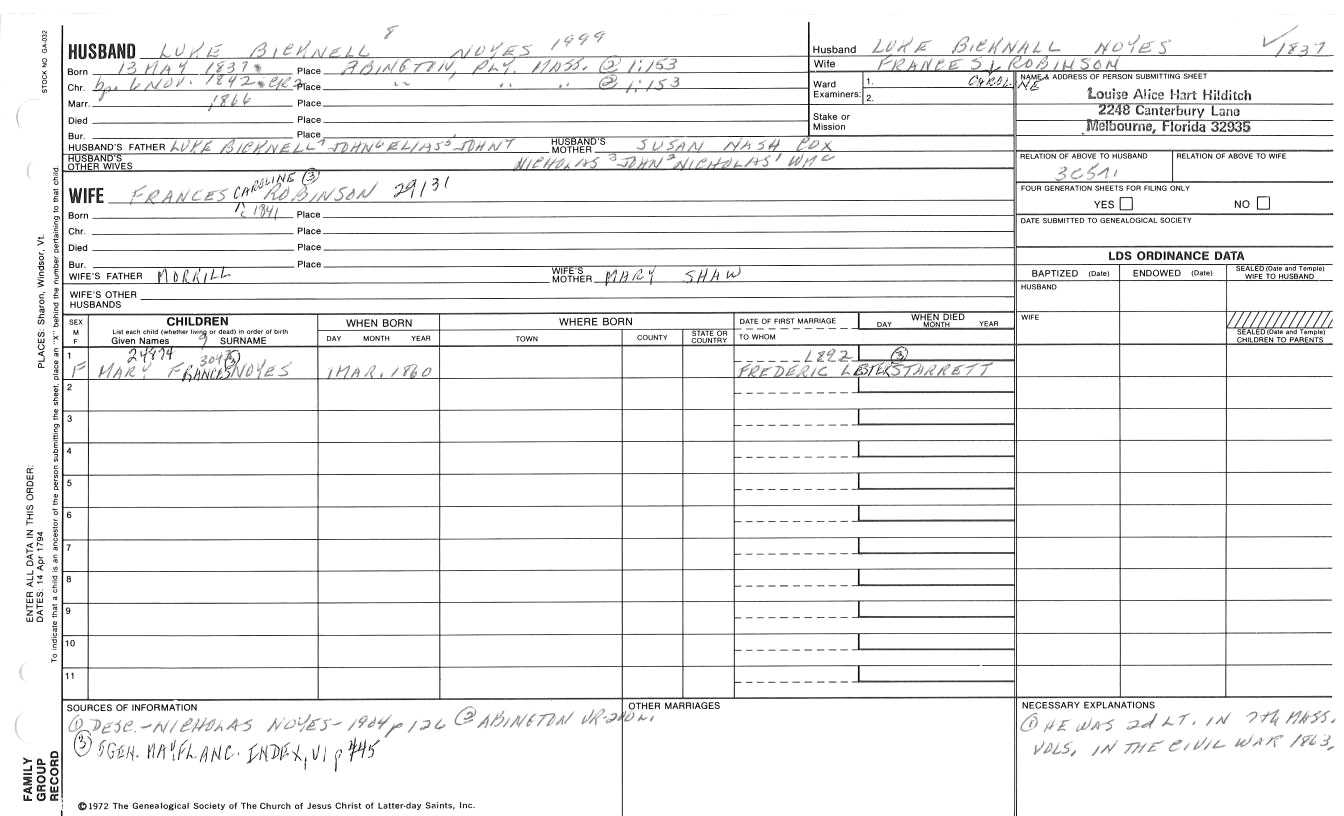 STOCK NO. GA-032
HUSBAND LUKE BICKNELL 8 NOYES 1999
Born 13 MAY 1837 Place ABINGTON, PLY. MASS. ② 1:153
Chr. bp. 6 NOV. 1842 CR2 Place " " " ② 1:153
Marr. 1866 Place
Died Place
Bur. Place
HUSBAND'S FATHER LUKE BICKNELL7 JOHN6 ELIAS5 JOHN4
HUSBAND'S MOTHER SUSAN NASH COX
HUSBAND'S OTHER WIVES NICHOLAS3 JOHN2 NICHOLAS1 WMC
WIFE FRANCES CAROLINE ③ ROBINSON 29131
Born c 1841 Place
Chr. Place
Died Place
Bur. Place
WIFE'S FATHER MORRILL
WIFE'S MOTHER MARY SHAW
WIFE'S OTHER HUSBANDS
Husband LUKE BICKNALL NOYES √1837
Wife FRANCES L ROBINSON
CAROLINE
Ward Examiners: 1.
2.
Stake or Mission
NAME & ADDRESS OF PERSON SUBMITTING SHEET
Louise Alice Hart Hilditch
2248 Canterbury Lane
Melbourne, Florida 32935
RELATION OF ABOVE TO HUSBAND RELATION OF ABOVE TO WIFE
3C5r1
FOUR GENERATION SHEETS FOR FILING ONLY
YES NO
DATE SUBMITTED TO GENEALOGICAL SOCIETY
LDS ORDINANCE DATA
BAPTIZED (Date) ENDOWED (Date) SEALED (Date and Temple) WIFE TO HUSBAND
HUSBAND
WIFE
SEALED (Date and Temple) CHILDREN TO PARENTS
SEX M F
CHILDREN
List each child (whether living or dead) in order of birth
Given Names 9 SURNAME
WHEN BORN
DAY MONTH YEAR
WHERE BORN
TOWN COUNTY STATE OR COUNTRY
DATE OF FIRST MARRIAGE
TO WHOM
WHEN DIED
DAY MONTH YEAR
1 24974 ③ 1892 ③
F MARY FRANCES NOYES 1 MAR. 1860 FREDERIC LESTER STARRETT
2
3
4
5
6
7
8
9
10
11
SOURCES OF INFORMATION
① DESC.-NICHOLAS NOYES-1904 p 126 ② ABINGTON VR-2vol.
③ 5GEN. MAYFL ANC. INDEX, V1 p 445
OTHER MARRIAGES
NECESSARY EXPLANATIONS
① HE WAS 2d LT. IN 7th MASS.
VOLS, IN THE CIVIL WAR 1863,
©1972 The Genealogical Society of The Church of Jesus Christ of Latter-day Saints, Inc.
FAMILY GROUP RECORD
ENTER ALL DATA IN THIS ORDER:
DATES: 14 Apr 1794
PLACES: Sharon, Windsor, Vt.
To indicate that a child is an ancestor of the person submitting the sheet, place an "X" behind the number pertaining to that child